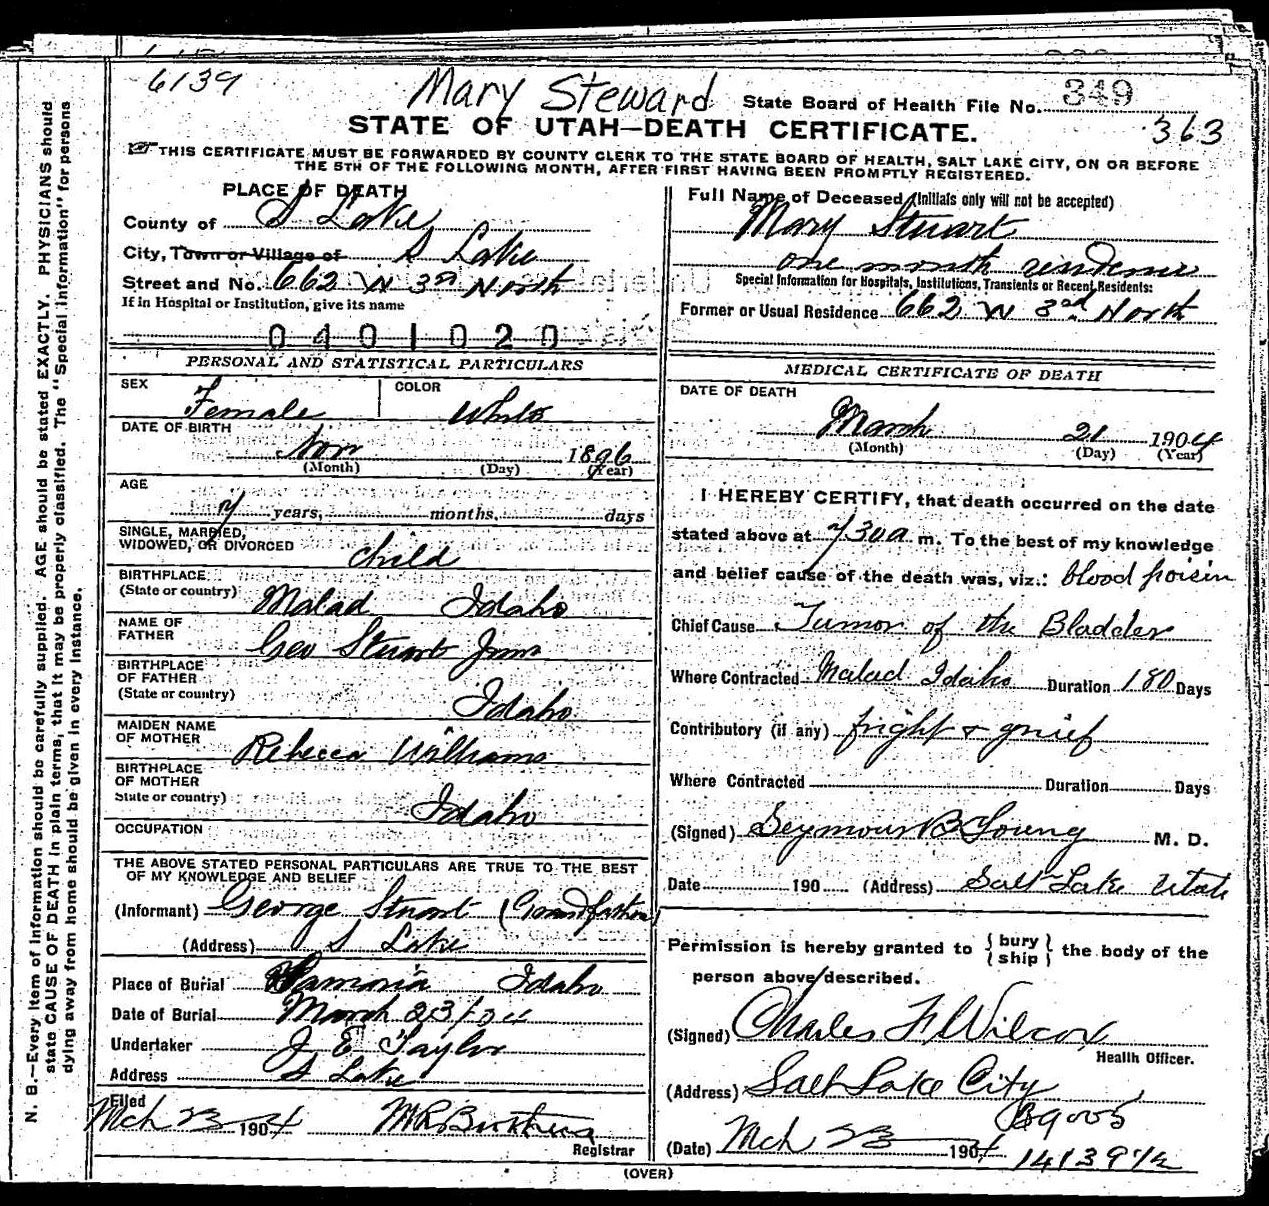 6139
Mary Steward
State Board of Health File No. 349
363
STATE OF UTAH—DEATH CERTIFICATE.
THIS CERTIFICATE MUST BE FORWARDED BY COUNTY CLERK TO THE STATE BOARD OF HEALTH, SALT LAKE CITY, ON OR BEFORE
THE 5TH OF THE FOLLOWING MONTH, AFTER FIRST HAVING BEEN PROMPTLY REGISTERED.
PLACE OF DEATH
County of S Lake
City, Town or Village of S Lake
Street and No. 662 W 3rd North
If in Hospital or Institution, give its name
0401020
PERSONAL AND STATISTICAL PARTICULARS
SEX Female COLOR White
DATE OF BIRTH
Nov 1896
(Month) (Day) (Year)
AGE
7 years, months, days
SINGLE, MARRIED,
WIDOWED, OR DIVORCED child
BIRTHPLACE
(State or country) Malad Idaho
NAME OF
FATHER Geo Stuart Junr
BIRTHPLACE
OF FATHER
(State or country) Idaho
MAIDEN NAME
OF MOTHER Rebecca Williams
BIRTHPLACE
OF MOTHER
State or country) Idaho
OCCUPATION
THE ABOVE STATED PERSONAL PARTICULARS ARE TRUE TO THE BEST
OF MY KNOWLEDGE AND BELIEF
(Informant) George Stuart (Grandfather)
(Address) S Lake
Place of Burial Samaria Idaho
Date of Burial March 23/04
Undertaker J E Taylor
Address S Lake
Filed
Mch 23 1904
Registrar
Full Name of Deceased (Initials only will not be accepted)
Mary Stuart
one month residence
Special Information for Hospitals, Institutions, Transients or Recent Residents:
Former or Usual Residence 662 W 3rd North
MEDICAL CERTIFICATE OF DEATH
DATE OF DEATH
March 21 1904
(Month) (Day) (Year)
I HEREBY CERTIFY, that death occurred on the date
stated above at 730 a m. To the best of my knowledge
and belief cause of the death was, viz.: blood poisin
Chief Cause Tumor of the Bladder
Where Contracted Malad Idaho Duration 180 Days
Contributory (if any) fright & grief
Where Contracted Duration Days
(Signed) Seymour B Young M. D.
Date 190 (Address) Salt Lake Utah
Permission is hereby granted to { bury
ship } the body of the
person above described.
(Signed) Charles F Wilcox
Health Officer.
(Address) Salt Lake City
B9005
(Date) Mch 23 1904
14139 1/2
(OVER)
N. B.—Every item of information should be carefully supplied. AGE should be stated EXACTLY. PHYSICIANS should
state CAUSE OF DEATH in plain terms, that it may be properly classified. The "Special Information" for persons
dying away from home should be given in every instance.